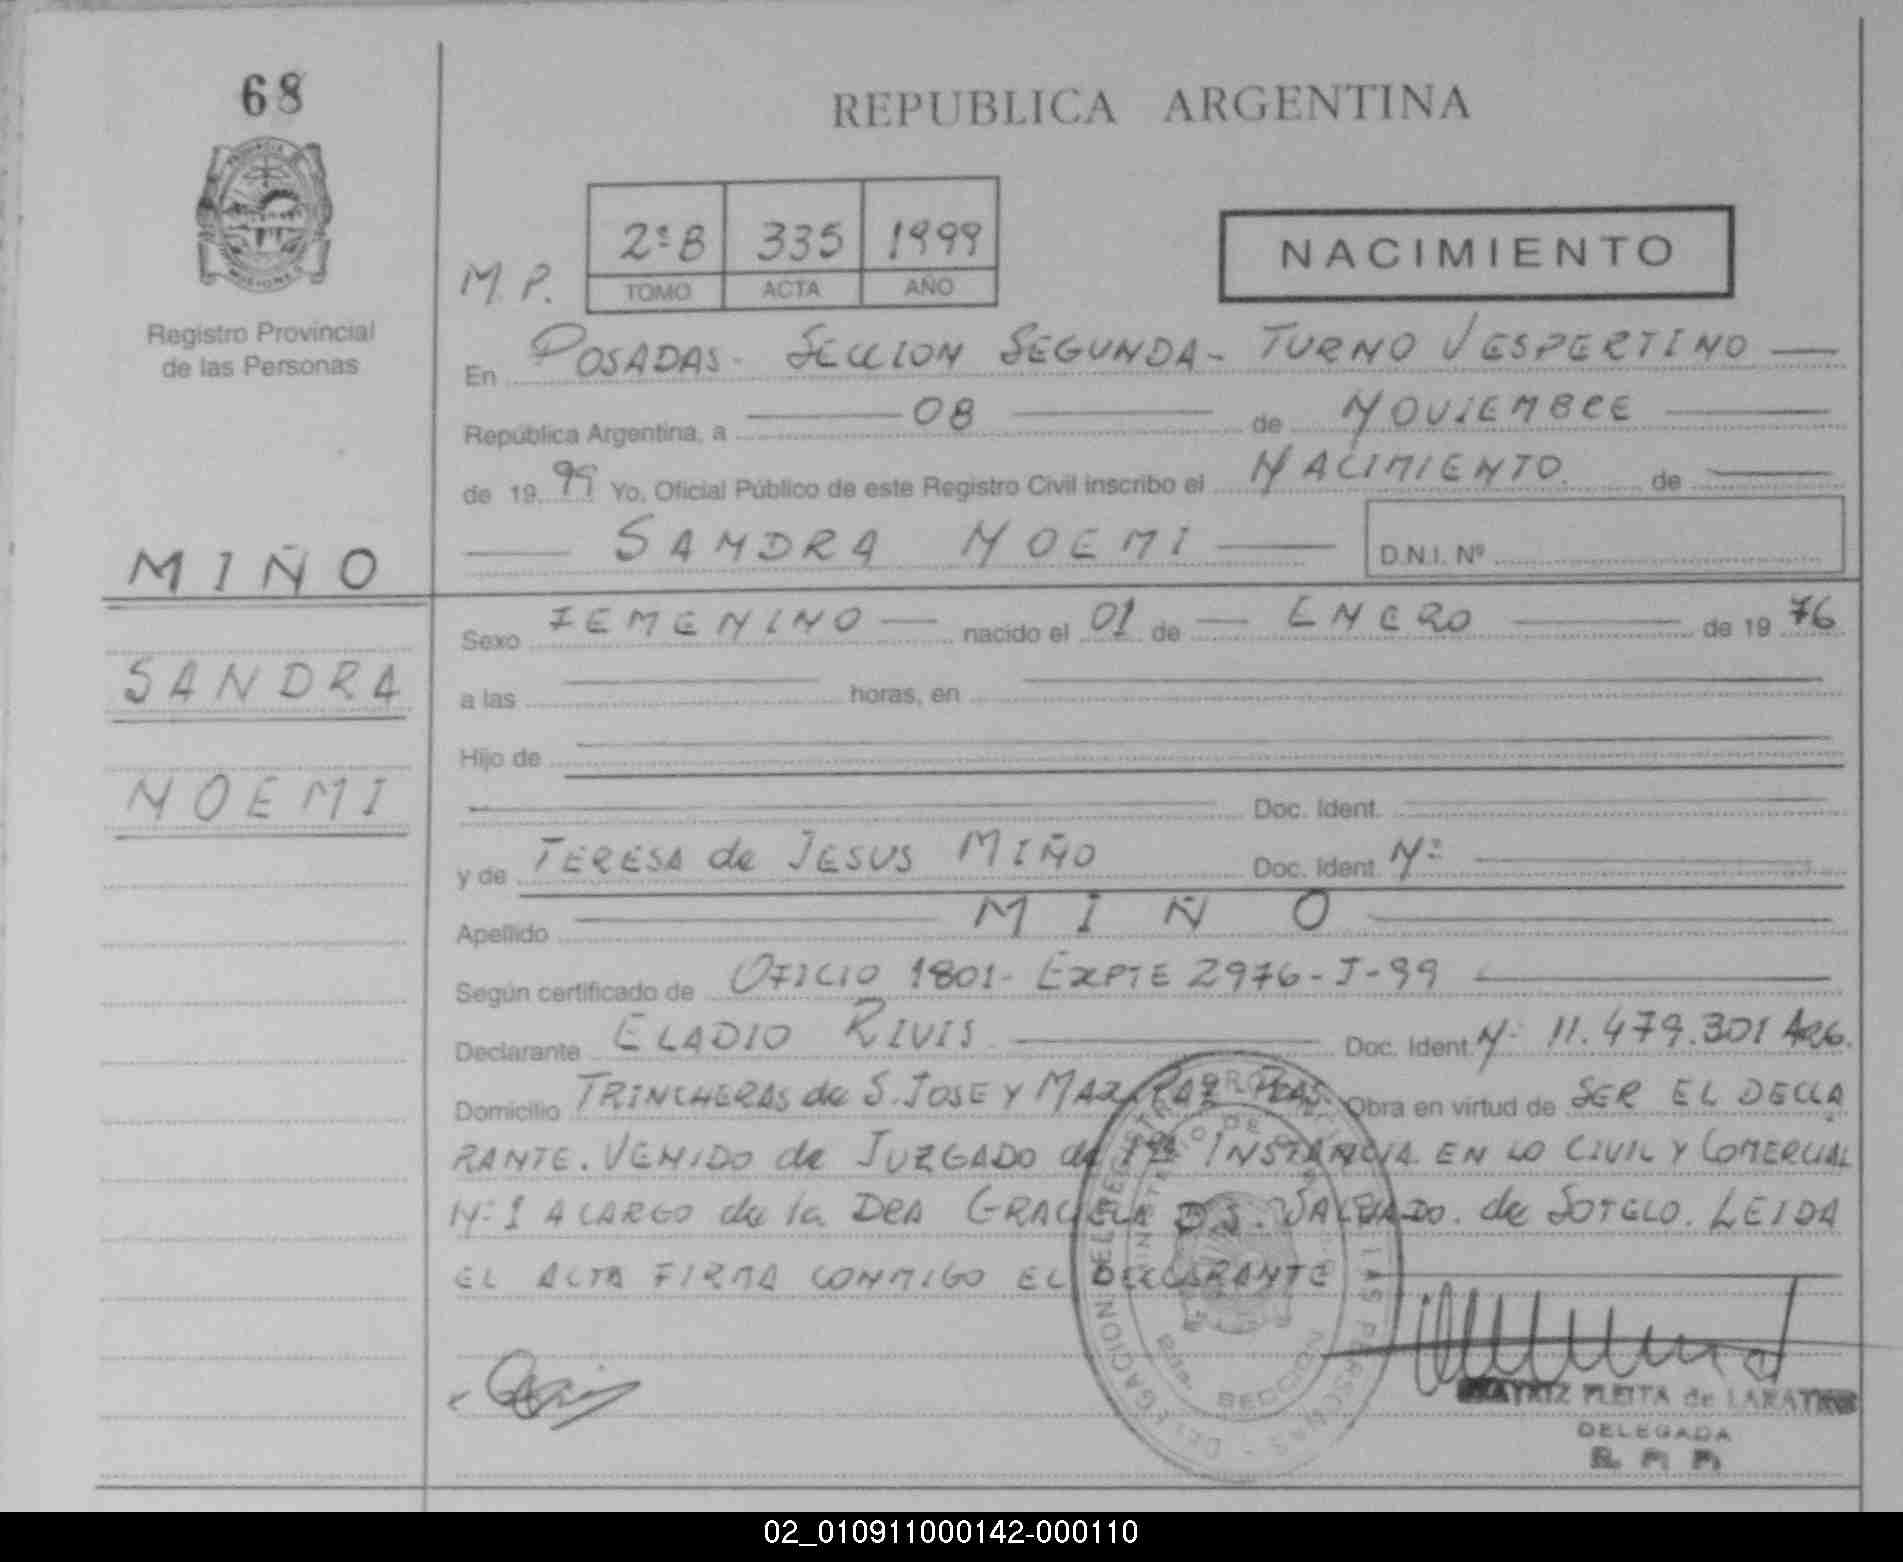 68
REPUBLICA ARGENTINA
Registro Provincial
de las Personas
M.P.
2º B 335 1999
TOMO ACTA AÑO
NACIMIENTO
En POSADAS - SECCION SEGUNDA - TURNO VESPERTINO
República Argentina, a 08 de NOVIEMBRE
de 19 99 Yo, Oficial Público de este Registro Civil inscribo el NACIMIENTO de
SANDRA NOEMI D.N.I. Nº
MIÑO
SANDRA
NOEMI
Sexo FEMENINO nacido el 01 de ENERO de 19 76
a las horas, en
Hijo de
Doc. Ident.
y de TERESA de JESUS MIÑO Doc. Ident. Nº
Apellido MIÑO
Según certificado de OFICIO 1801 - EXPTE 2976 - J - 99
Declarante ELADIO RIVIS Doc. Ident. Nº 11.479.301 ARG.
Domicilio TRINCHERAS de S. JOSE Y PDAS. Obra en virtud de SER EL DECLA
RANTE. VENIDO de JUZGADO de 1ra INSTANCIA EN LO CIVIL Y COMERCIAL
Nº 1 A CARGO de la DRA GRACIELA de SOTELO. LEIDA
EL ACTA FIRMA CONMIGO EL DECLARANTE
DELEGACION
SECCION
PLEITA de
DELEGADA
02_010911000142-000110